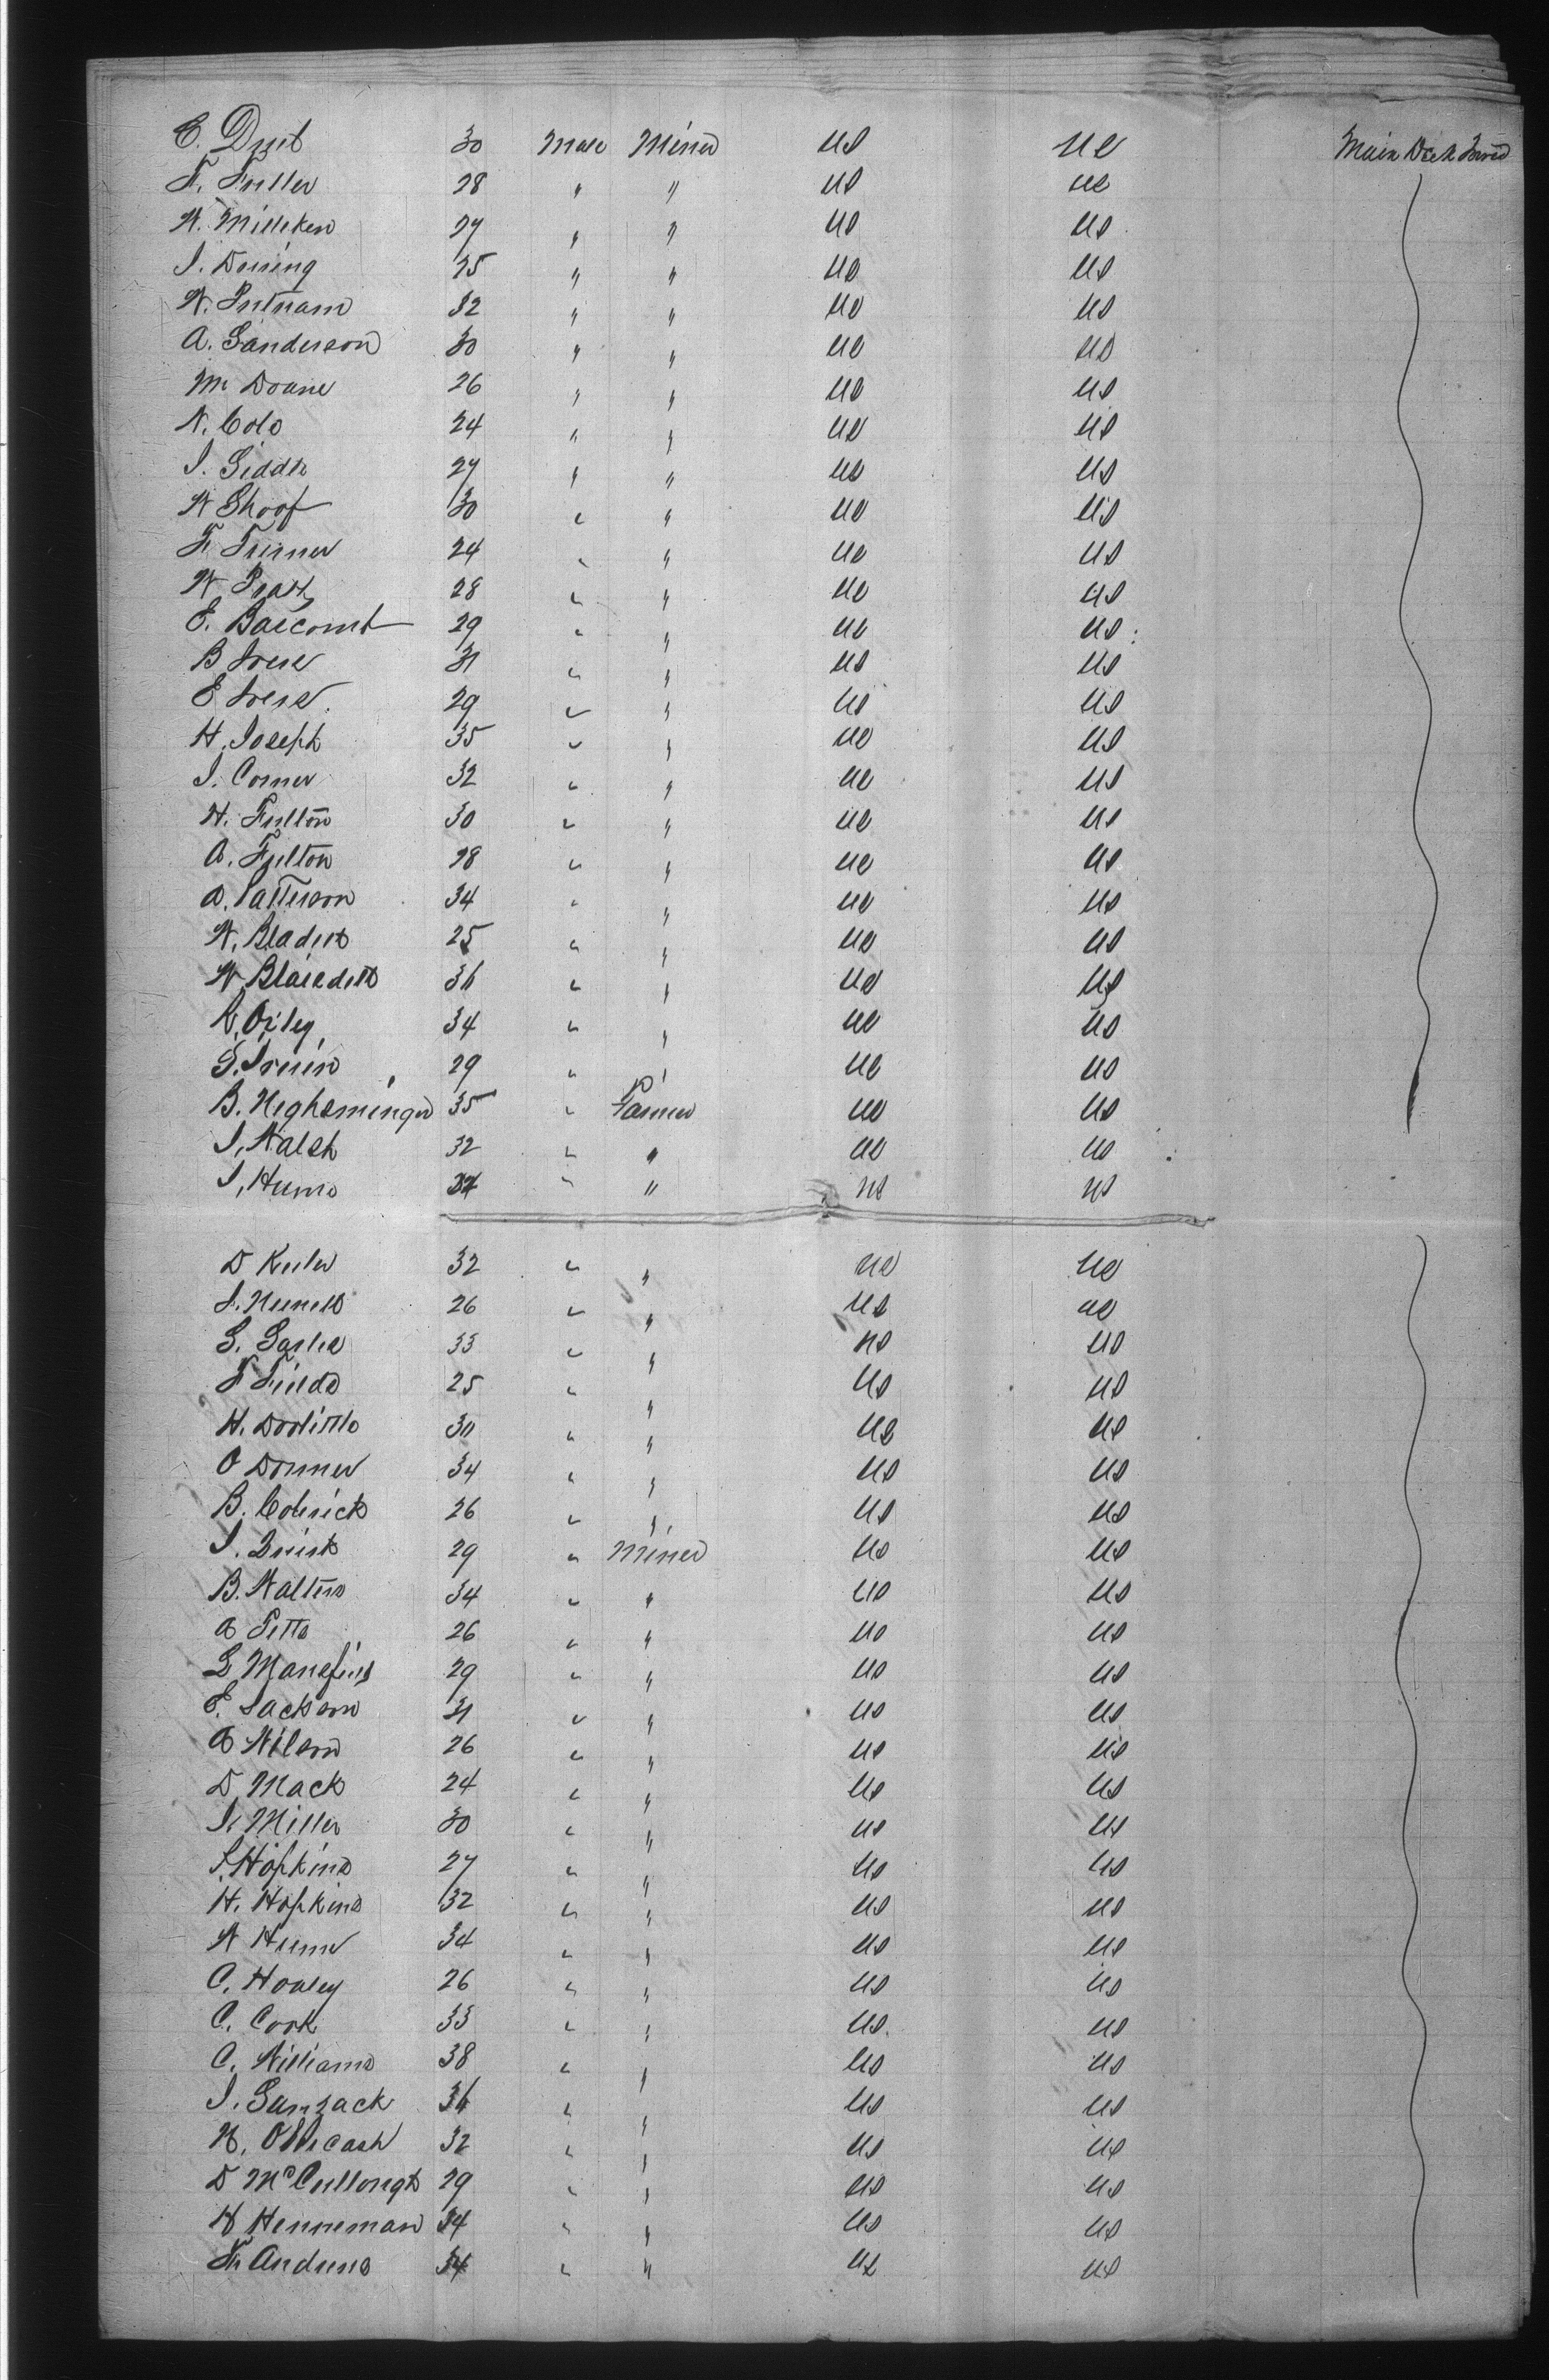 E. Duet 30 Male Miner US US Main Deck Forwd
F. Fuller 28 " " US US
W. Milliken 27 " " US US
J. Dening 25 " " US US
W. Putnam 32 " " US US
A. Sanderson 30 " " US US
M Doane 26 " " US US
N. Cole 24 " " US US
J. Geddes 27 " " US US
W Shoof 30 " " US US
F. Turner 24 " " US US
W Pratt 28 " " US US
E. Bascomb 29 " " US US
B 31 " " US US
E 29 " " US US
H. Joseph 35 " " US US
J. Corner 32 " " US US
H. Fulton 30 " " US US
A. Fulton 28 " " US US
A. Patterson 34 " " US US
W. Blades 25 " " US US
W. Blaisdell 36 " " US US
R. Oiley 34 " " US US
S. Irwin 29 " " US US
B. Neghsminger 35 " Farmer US US
J. Walsh 32 " " US US
J. Hume " " US US
D Keeler 32 " " US US
J. 26 " " US US
S. 33 " " US US
F Fields 25 " " US US
H. Doolittle 30 " " US US
O Donner 34 " " US US
B. Coderick 26 " " US US
J. 29 " Miner US US
B. Walters 34 " " US US
A Petts 26 " " US US
L Mansfield 29 " " US US
E. Jackson 31 " " US US
A Wilson 26 " " US US
D. Mack 24 " " US US
J. Miller 30 " " US US
S. Hopkins 27 " " US US
H. Hopkins 32 " " US US
W Hume 34 " " US US
C. Hoaley 26 " " US US
C. Cook 33 " " US US
C. Williams 38 " " US US
J. Sanzack 36 " " US US
N. 32 " " US US
D McCullough 29 " " US US
H Henneman 34 " " US US
Andrews 34 " " US US